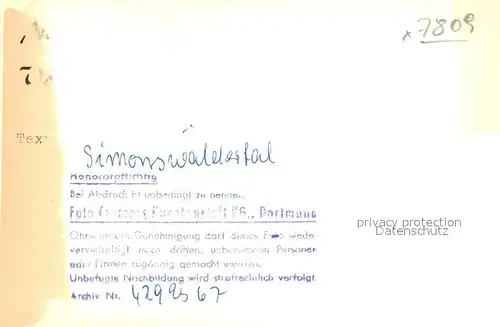 x 7809
Tex
Simonswäldertal
Honorarpflichtig
Bei Abdruck ist unbedingt zu nennen
Foto Dortmund
privacy protection
Datenschutz
Ohne unsere Genehmigung darf dieses Foto weder
vervielfältigt noch dritten, unbefugten Personen
oder Firmen zugängig gemacht werden.
Unbefugte Nachbildung wird strafrechtlich verfolgt.
Archiv Nr. 4299567